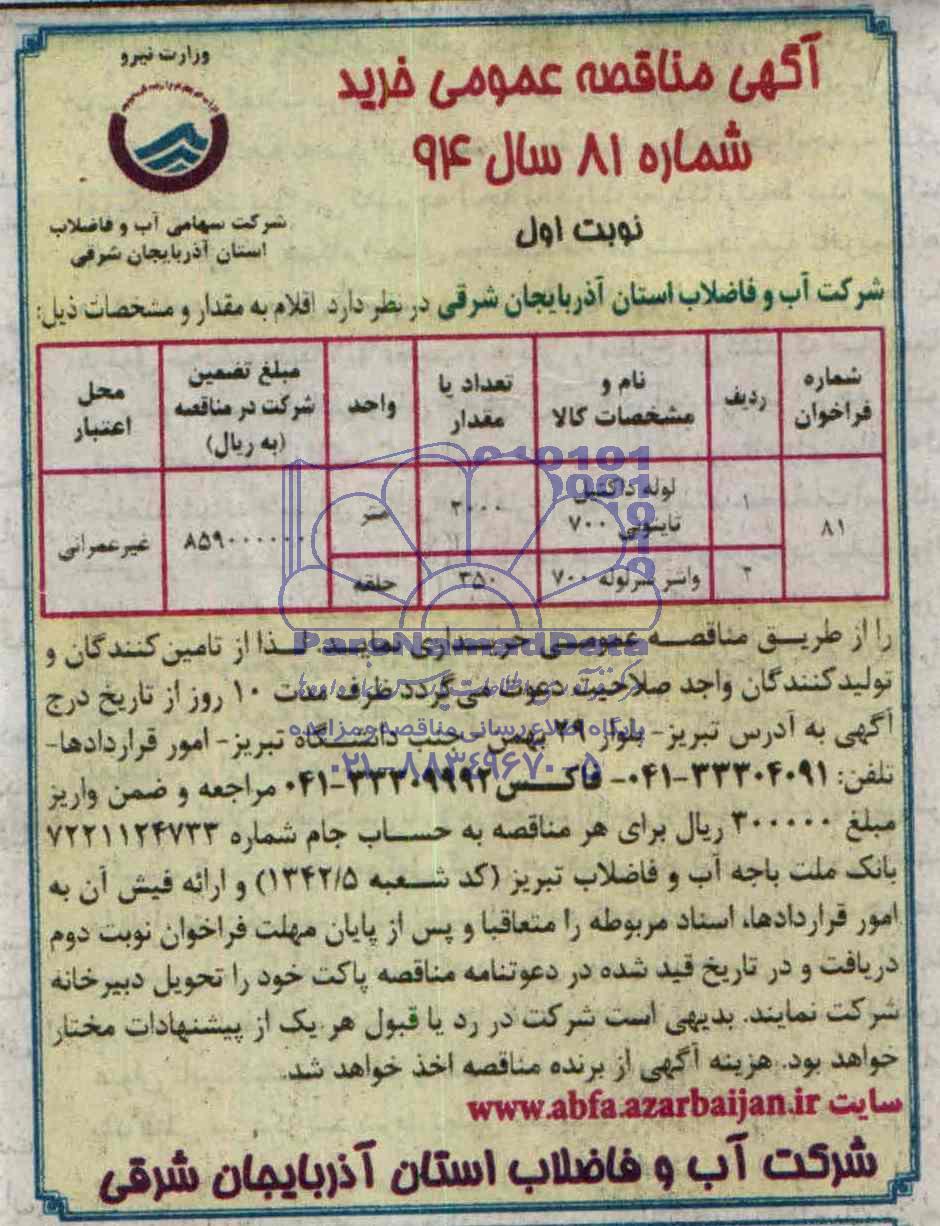 وزارت نیرو
شرکت سهامی آب و فاضلاب
استان آذربایجان شرقی
آگهی مناقصه عمومی خرید
شماره ۸۱ سال ۹۴
نوبت اول
شرکت آب و فاضلاب استان آذربایجان شرقی در نظر دارد اقلام به مقدار و مشخصات ذیل:
شماره فراخوان ردیف نام و مشخصات کالا تعداد یا مقدار واحد مبلغ تضمین شرکت در مناقصه (به ریال) محل اعتبار
۸۱ ۱ لوله داکتیل تایتونی ۷۰۰ ۲۰۰۰ متر ۸۵۹۰۰۰۰۰۰ غیرعمرانی
۲ واشر سرلوله ۷۰۰ ۳۵۰ حلقه
را از طریق مناقصه عمومی خریداری نماید لذا از تامین‌کنندگان و
تولیدکنندگان واجد صلاحیت دعوت می‌گردد ظرف مدت ۱۰ روز از تاریخ درج
آگهی به آدرس تبریز- بلوار ۲۹ بهمن- جنب دانشگاه تبریز- امور قراردادها-
تلفن: ۳۳۳۰۴۰۹۱-۰۴۱- فاکس ۳۳۳۰۹۹۹۲-۰۴۱ مراجعه و ضمن واریز
مبلغ ۳۰۰۰۰۰ ریال برای هر مناقصه به حساب جام شماره ۷۲۲۱۱۲۴۷۳۳
بانک ملت باجه آب و فاضلاب تبریز (کد شعبه ۱۳۴۲/۵) و ارائه فیش آن به
امور قراردادها، اسناد مربوطه را متعاقبا و پس از پایان مهلت فراخوان نوبت دوم
دریافت و در تاریخ قید شده در دعوتنامه مناقصه پاکت خود را تحویل دبیرخانه
شرکت نمایند. بدیهی است شرکت در رد یا قبول هر یک از پیشنهادات مختار
خواهد بود. هزینه آگهی از برنده مناقصه اخذ خواهد شد.
سایت www.abfa.azarbaijan.ir
شرکت آب و فاضلاب استان آذربایجان شرقی
ParsNamadData
پایگاه اطلاع رسانی مناقصه و مزایده
۰۲۱-۸۸۳۴۹۶۷۰-۵